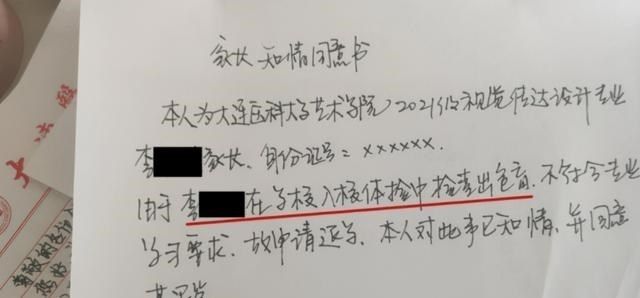 家长知情同意书
本人为大连医科大学艺术学院2021级视觉传达设计专业
李 家长、身份证号：××××××.
由于李 在学校入校体检中检查出色盲.不符合专业
学习要求.故申请退学.本人对此事已知情.并同意